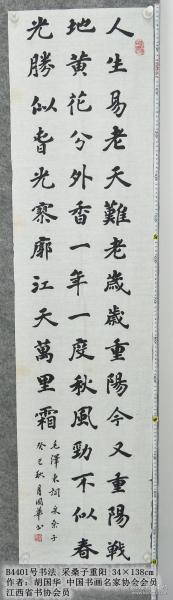 人生易老天難老歲歲重陽今又重陽戰
地黄花分外香一年一度秋風勁不似春
光勝似春光寥廓江天萬里霜
毛澤東詞采桑子
癸巳秋月國華书
B4401号书法 采桑子重阳 34×138cm
作者：胡国华 中国书画名家协会会员
江西省书协会员